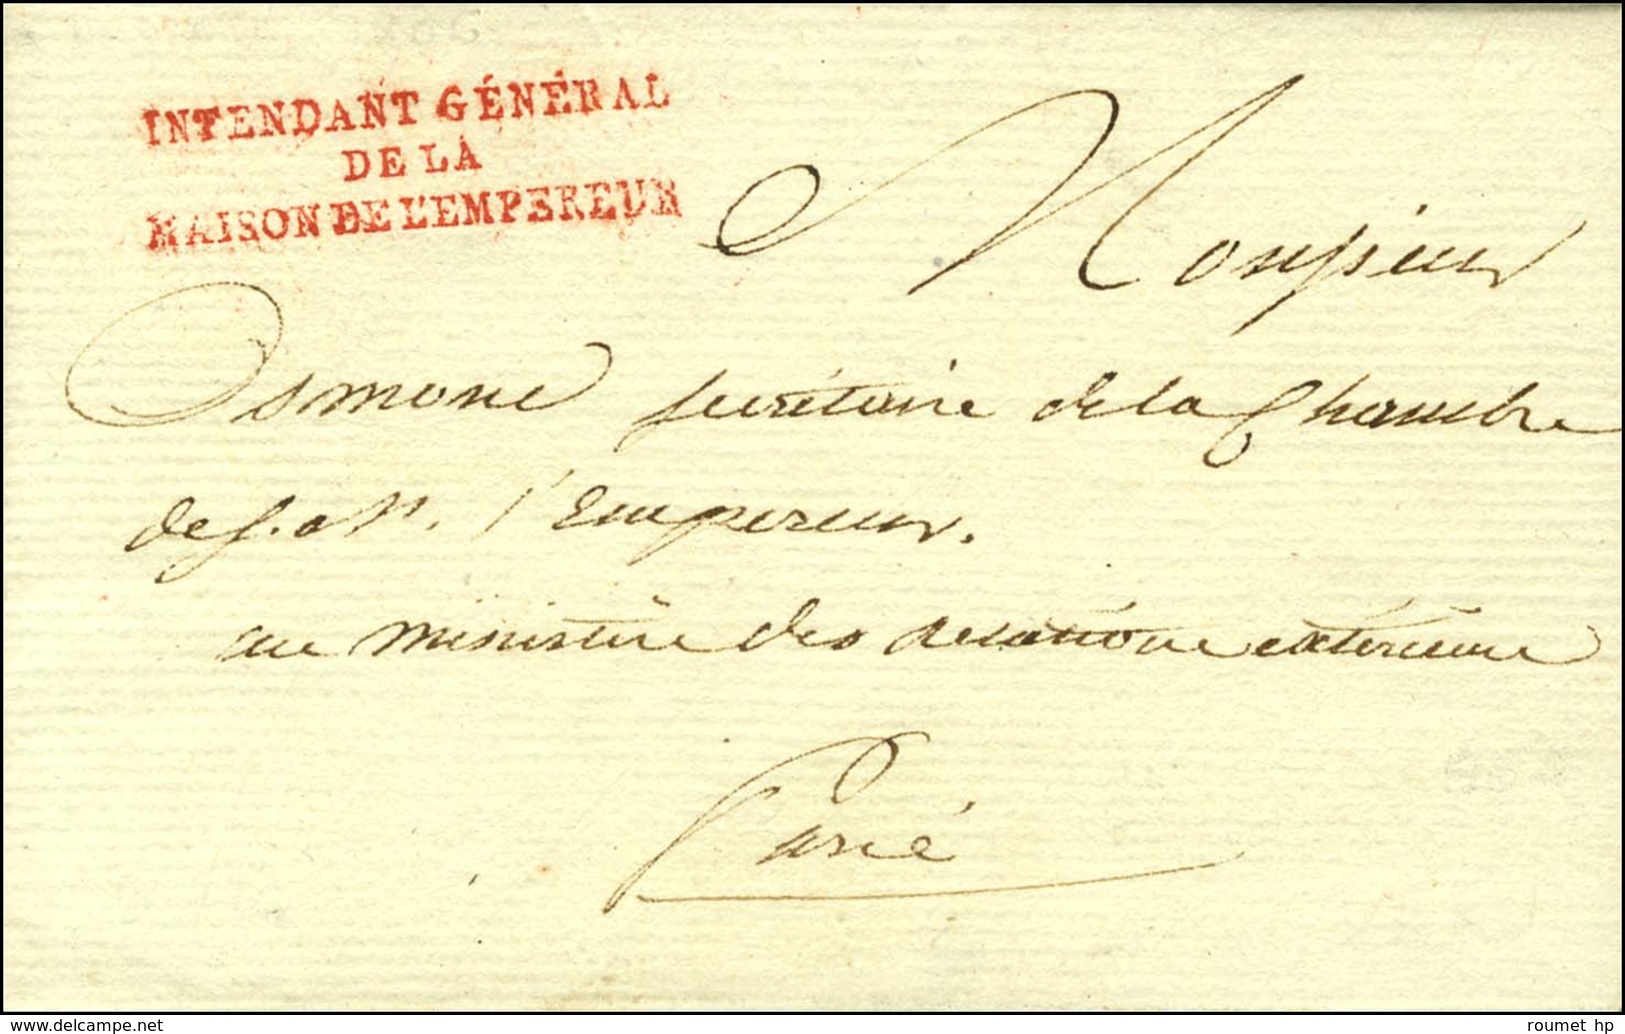 INTENDANT GÉNÉRAL
DE LA
MAISON DE L'EMPEREUR
Monsieur
Osmond secrétaire de la Chambre
de S. M. l'Empereur.
au ministère des relations extérieures
Paris
www.delcampe.net
roumet hp